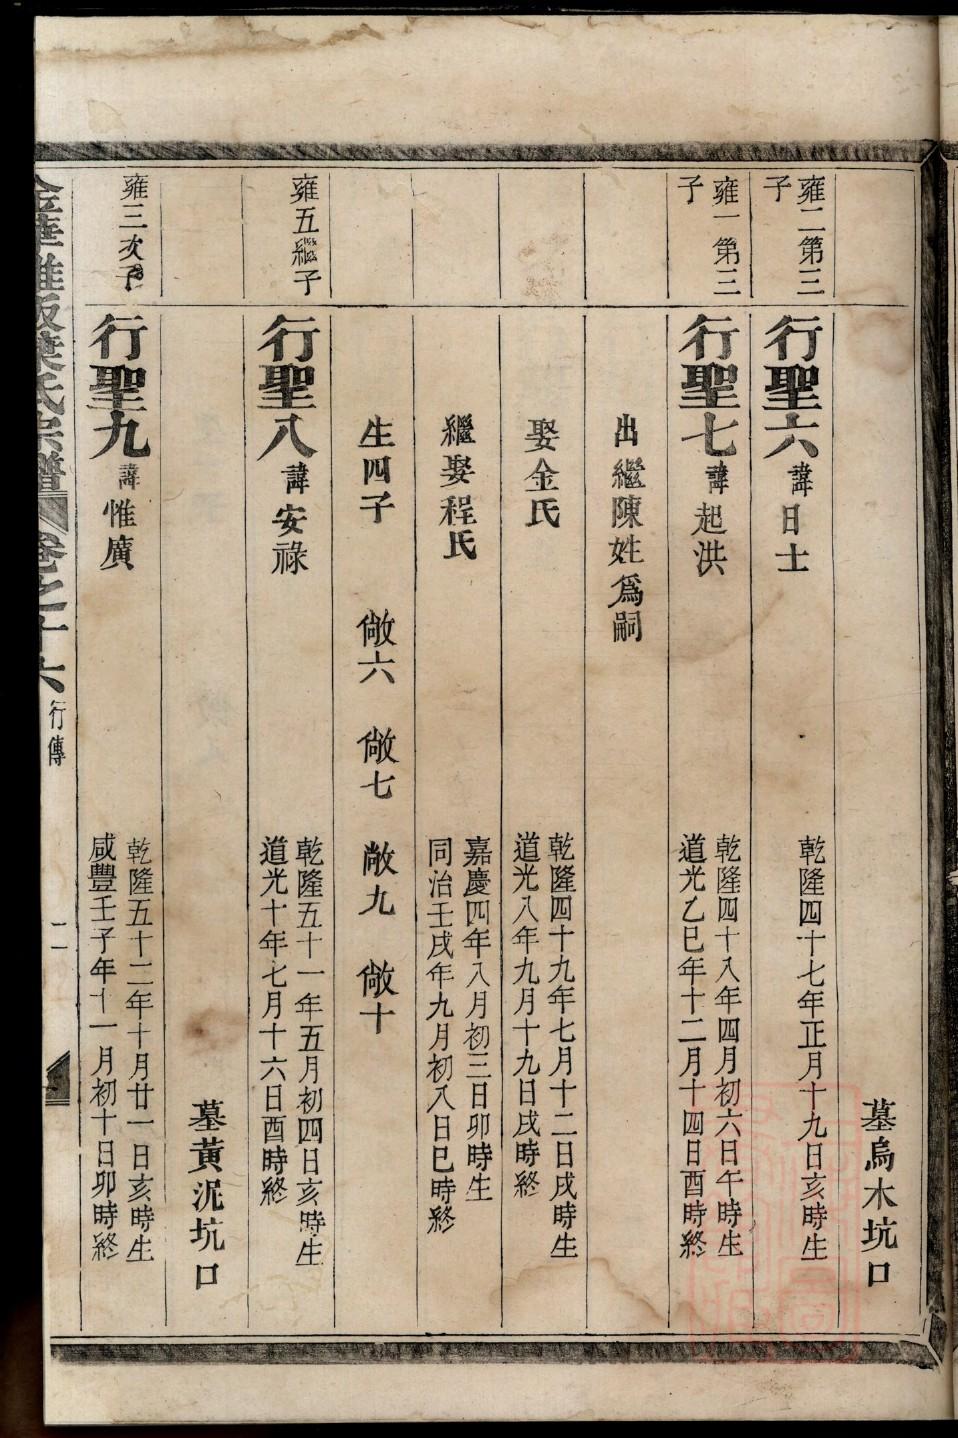 墓烏木坑口
雍二第三子
行聖六 諱日士
乾隆四十七年正月十九日亥時生
雍一第三子
行聖七 諱起洪
乾隆四十八年四月初六日午時生
道光乙巳年十二月十四日酉時終
出繼陳姓爲嗣
娶金氏
乾隆四十九年七月十二日戌時生
道光八年九月十九日戌時終
繼娶程氏
嘉慶四年八月初三日卯時生
同治壬戌年九月初八日巳時終
生四子 倘六 倘七 敞九 倘十
雍五繼子
行聖八 諱安祿
乾隆五十一年五月初四日亥時生
道光十年七月十六日酉時終
墓黃泥坑口
雍三次子
行聖九 諱惟廣
乾隆五十二年十月廿一日亥時生
咸豐壬子年十一月初十日卯時終
葉氏宗譜 卷之十六 行傳 二